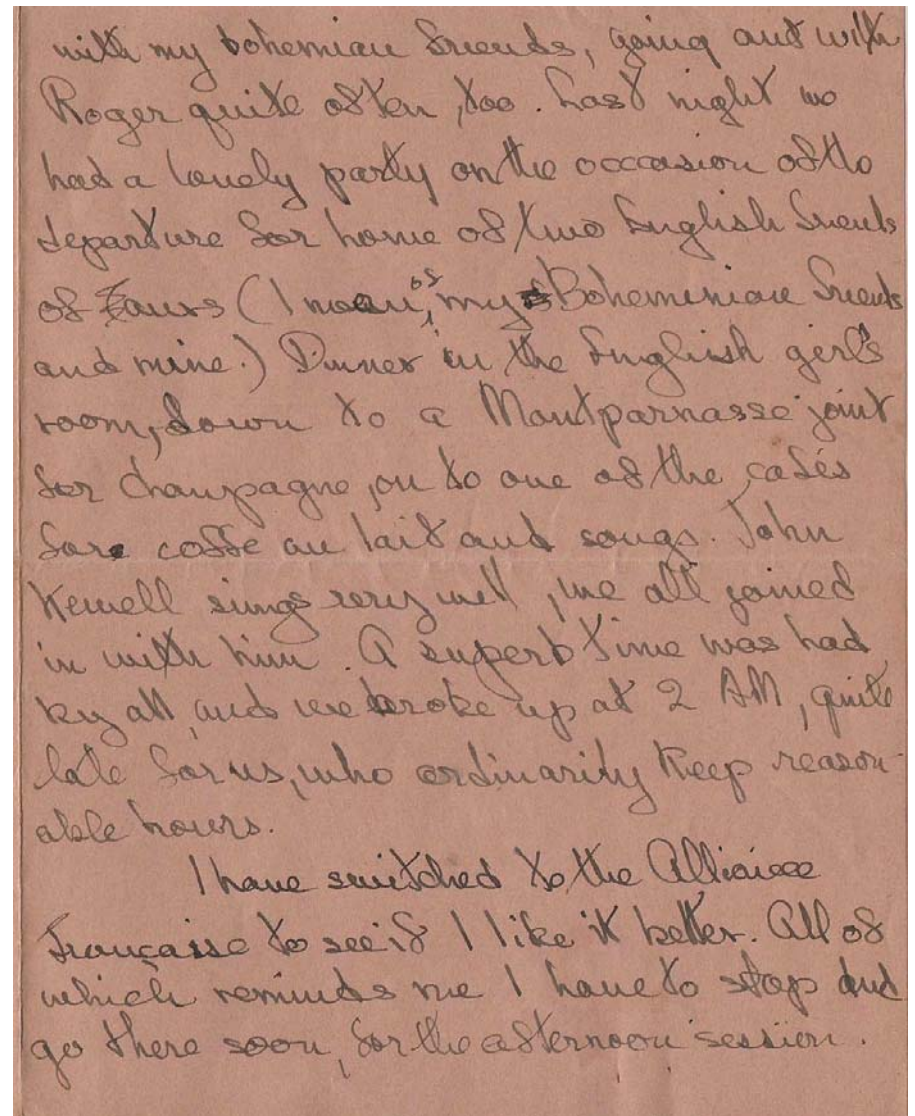 with my bohemian friends, going out with
Roger quite often, too. Last night we
had a lovely party on the occasion of the
departure for home of two English friends
of ours (I mean, of my Boheminian friends
and mine.) Dinner in the English girl's
room, down to a Montparnasse joint
for champagne, on to one of the cafés
for coffe au lait and songs. John
Kewell sings very well, we all joined
in with him. A superb time was had
by all, and we broke up at 2 AM, quite
late for us, who ordinarily keep reason-
able hours.
I have switched to the Alliance
Française to see if I like it better. All of
which reminds me I have to stop and
go there soon, for the afternoon session.